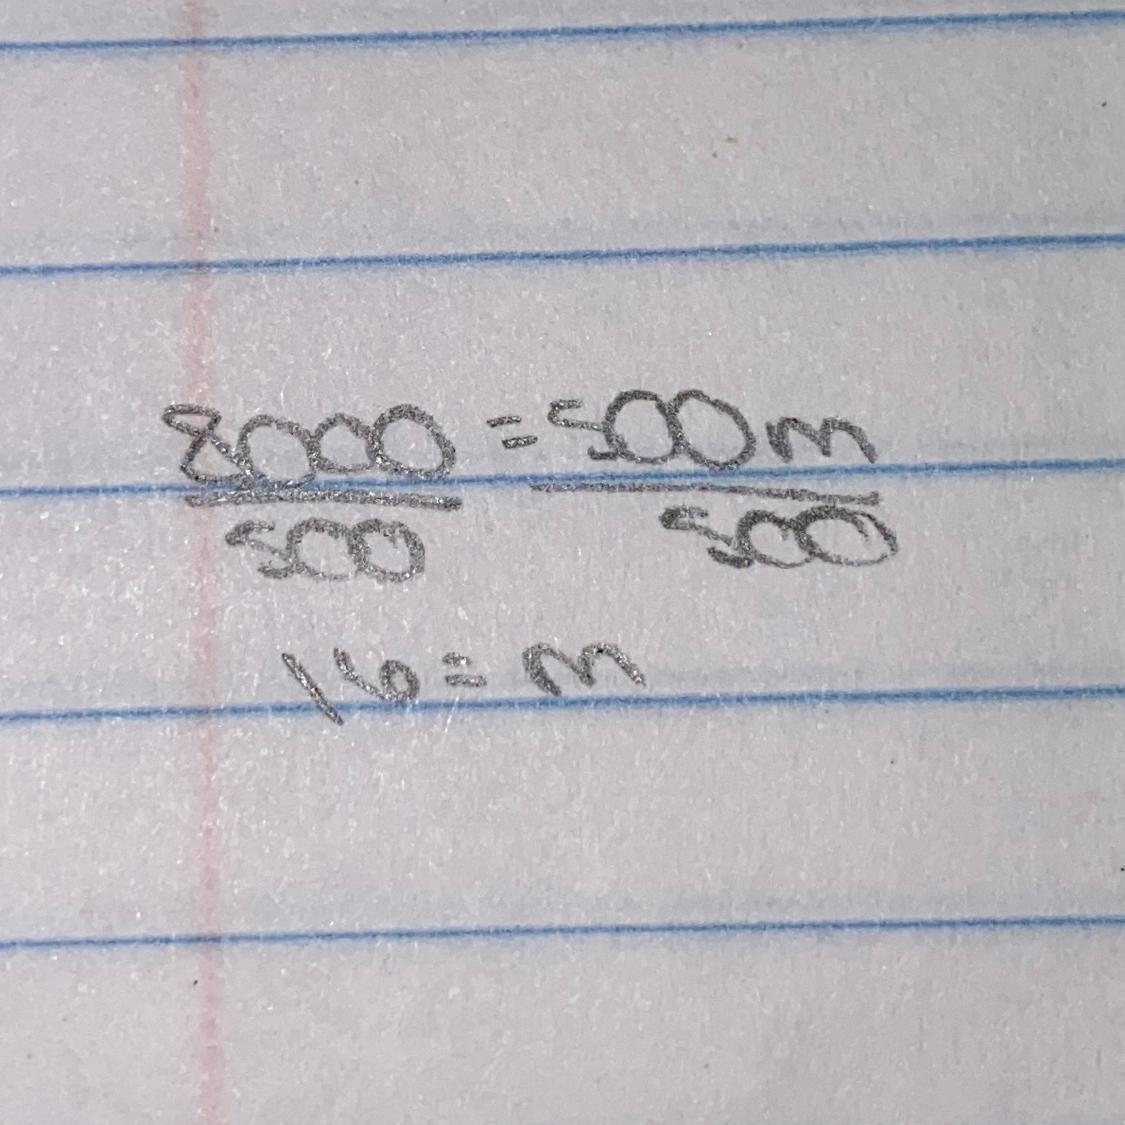 8000 = 500m
500 500
16 = m